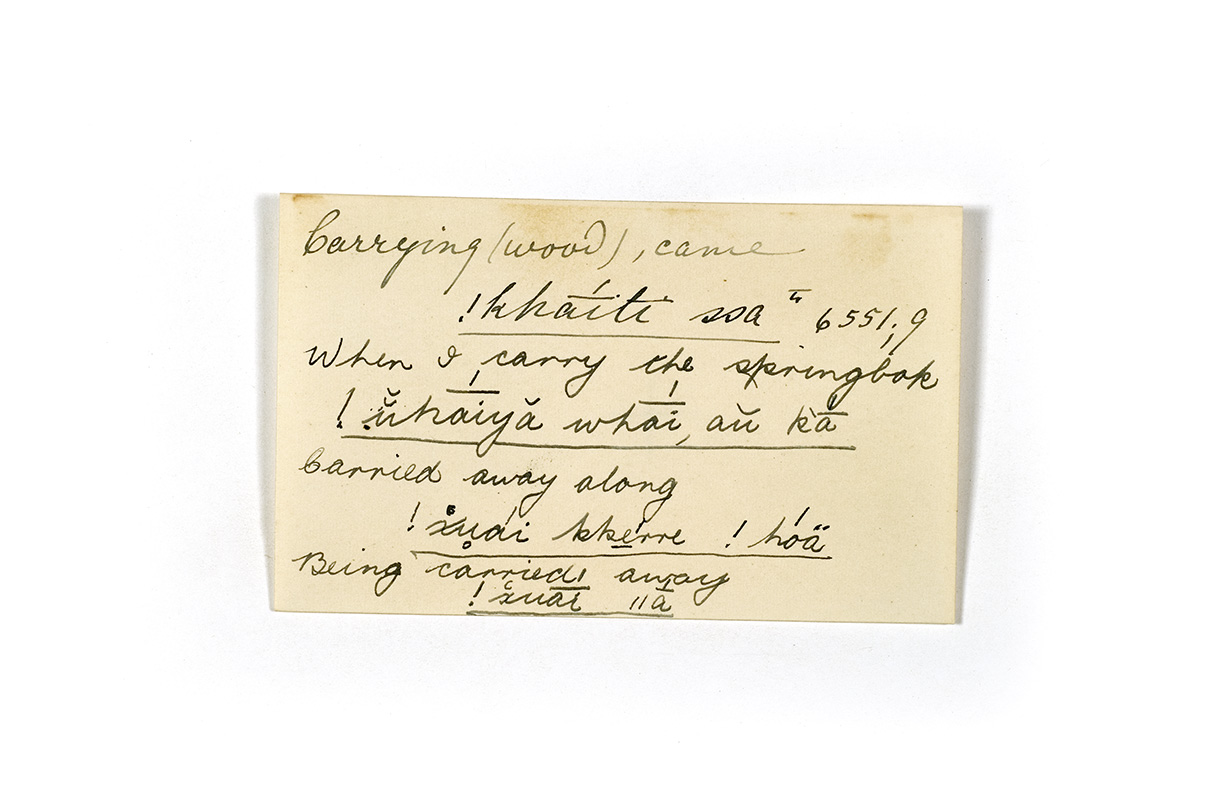 Carrying (wood), came
!kháīti ssa " 6551;9
When I carry the springbok
!ŭhá̄iyă whá̄i, aŭ k̀ā́
Carried away along
!x̥u̥ái kke̱rre !hóä
Being carried away
!x̥uā́i ǁā́